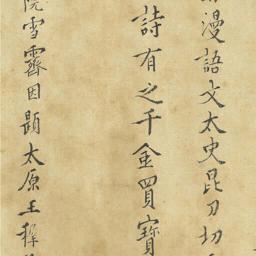 漫語文太史昆刀切
詩有之千金買寶
院雪霽因題太原王穉